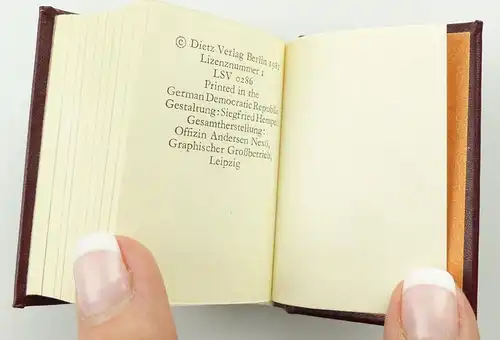 © Dietz Verlag Berlin
Lizenznummer 1
LSV 0286
Printed in the
German Democratic Republic
Gestaltung: Siegfried Hempel
Gesamtherstellung:
Offizin Andersen Nexö,
Graphischer Großbetrieb,
Leipzig